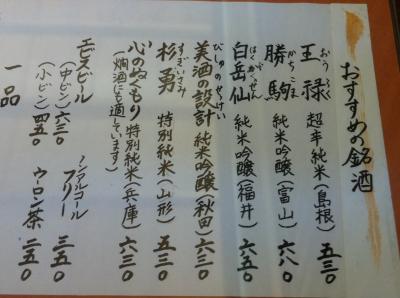 おすすめの銘酒
王祿 超辛純米(島根) 五三〇
おうろく
勝駒 純米吟醸(富山) 六八〇
かちこま
白岳仙 純米吟醸(福井) 六五〇
はくがくせん
美酒の設計 純米吟醸(秋田) 六三〇
びしゅのせっけい
杉勇 特別純米(山形) 五三〇
すぎいさみ
心のぬくもり 特別純米(兵庫) 六三〇
(燗酒にも適しています)
エビスビール ノンアルコール
(中ビン) 六三〇 フリー 三五〇
(小ビン) 四五〇 ウーロン茶 二五〇
一品